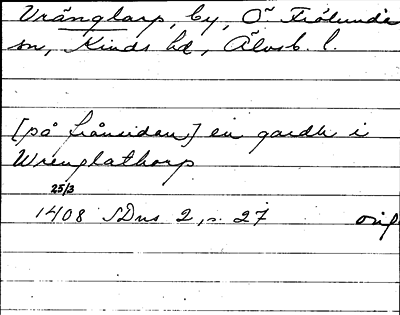 Vränglarp, by, Ö. Frölunda
sn, Kinds hd, Älvsb. l.
[på frånsidan,] en gardh i
Wrenglathorp
25/3
1408 SDns 2, s. 27 orig